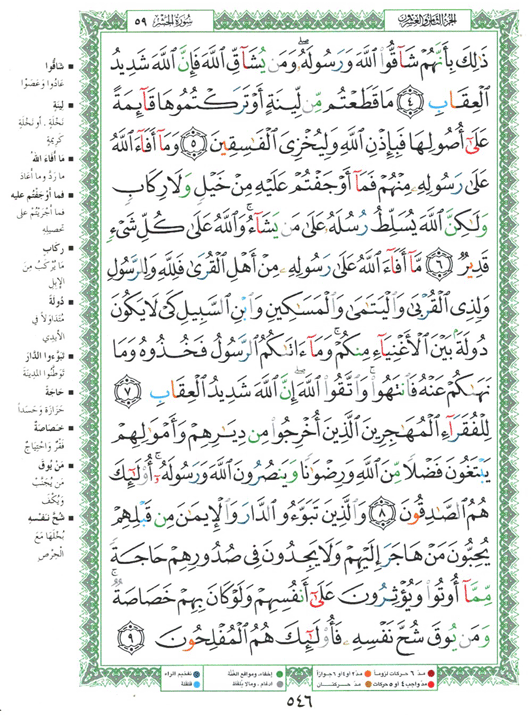 الجزء الثامن والعشرون
سورة الحشر
٥٩
ذَٰلِكَ بِأَنَّهُمْ شَاقُّوا۟ ٱللَّهَ وَرَسُولَهُۥ ۖ وَمَن يُشَاقِّ ٱللَّهَ فَإِنَّ ٱللَّهَ شَدِيدُ
ٱلْعِقَابِ ٤ مَا قَطَعْتُم مِّن لِّينَةٍ أَوْ تَرَكْتُمُوهَا قَآئِمَةً
عَلَىٰٓ أُصُولِهَا فَبِإِذْنِ ٱللَّهِ وَلِيُخْزِىَ ٱلْفَٰسِقِينَ ٥ وَمَآ أَفَآءَ ٱللَّهُ
عَلَىٰ رَسُولِهِۦ مِنْهُمْ فَمَآ أَوْجَفْتُمْ عَلَيْهِ مِنْ خَيْلٍ وَلَا رِكَابٍ
وَلَٰكِنَّ ٱللَّهَ يُسَلِّطُ رُسُلَهُۥ عَلَىٰ مَن يَشَآءُ ۚ وَٱللَّهُ عَلَىٰ كُلِّ شَىْءٍ
قَدِيرٌ ٦ مَّآ أَفَآءَ ٱللَّهُ عَلَىٰ رَسُولِهِۦ مِنْ أَهْلِ ٱلْقُرَىٰ فَلِلَّهِ وَلِلرَّسُولِ
وَلِذِى ٱلْقُرْبَىٰ وَٱلْيَتَٰمَىٰ وَٱلْمَسَٰكِينِ وَٱبْنِ ٱلسَّبِيلِ كَىْ لَا يَكُونَ
دُولَةًۢ بَيْنَ ٱلْأَغْنِيَآءِ مِنكُمْ ۚ وَمَآ ءَاتَىٰكُمُ ٱلرَّسُولُ فَخُذُوهُ وَمَا
نَهَىٰكُمْ عَنْهُ فَٱنتَهُوا۟ ۚ وَٱتَّقُوا۟ ٱللَّهَ ۖ إِنَّ ٱللَّهَ شَدِيدُ ٱلْعِقَابِ ٧
لِلْفُقَرَآءِ ٱلْمُهَٰجِرِينَ ٱلَّذِينَ أُخْرِجُوا۟ مِن دِيَٰرِهِمْ وَأَمْوَٰلِهِمْ
يَبْتَغُونَ فَضْلًا مِّنَ ٱللَّهِ وَرِضْوَٰنًا وَيَنصُرُونَ ٱللَّهَ وَرَسُولَهُۥٓ ۚ أُو۟لَٰٓئِكَ
هُمُ ٱلصَّٰدِقُونَ ٨ وَٱلَّذِينَ تَبَوَّءُو ٱلدَّارَ وَٱلْإِيمَٰنَ مِن قَبْلِهِمْ
يُحِبُّونَ مَنْ هَاجَرَ إِلَيْهِمْ وَلَا يَجِدُونَ فِى صُدُورِهِمْ حَاجَةً
مِّمَّآ أُوتُوا۟ وَيُؤْثِرُونَ عَلَىٰٓ أَنفُسِهِمْ وَلَوْ كَانَ بِهِمْ خَصَاصَةٌ ۚ
وَمَن يُوقَ شُحَّ نَفْسِهِۦ فَأُو۟لَٰٓئِكَ هُمُ ٱلْمُفْلِحُونَ ٩
شَاقُّوا
عَادَوا وَعَصَوْا
لِينَةٍ
نَخْلَةٍ ، أو نَخْلَةٍ
كَرِيمَةٍ
مَا أفَاءَ اللهُ
مَا رَدَّ وما أعَادَ
فما أوْجَفْتُم عليه
فما أجْرَيْتُمْ على
تحصيله
رِكابٍ
مَا يُرْكَبُ مِن
الإبل
دُولَةً
مُتَدَاوَلاً في
الأيدي
تَبَوَّءُوا الدَّارَ
تَوَطَّنُوا المدِينَةَ
حَاجَةً
حَزَازَةً وَحَسَداً
خَصَاصَةٌ
فَقْرٌ وَاحْتِيَاجٌ
مَنْ يُوقَ
مَن يُجَنَّب
وَيُكْفَ
شُحَّ نَفْسِهِ
بُخْلَهَا مَعَ
الحِرْصِ
مدّ ٦ حركات لزوماً
مدّ ٢ أو ٤ أو ٦ جوازاً
إخفاء، ومواقع الغُنَّة
تفخيم الراء
مدّ واجب ٤ أو ٥ حركات
مدّ حركتــان
ادغام ، وما لا يُلفَظ
قلقلة
٥٤٦